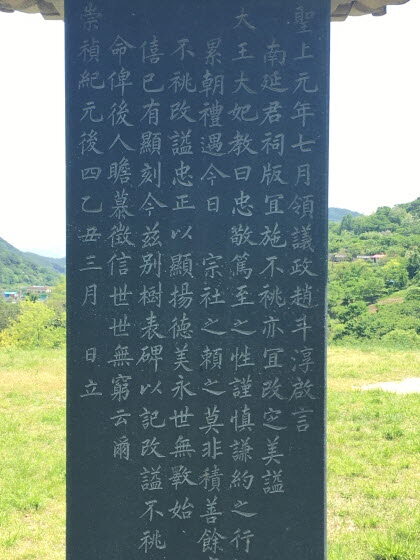 聖上元年七月領議政趙斗淳啟言
南延君祠版宜施不祧亦宜改定美謚
大王大妃教曰忠敬篤至之性謹慎謙約之行
累朝禮遇今日 宗社之賴之莫非積善餘
不祧改謚忠正以顯揚德美永世無斁始
僖已有顯刻今茲别樹表碑以記改謚不祧
命俾後人瞻慕徵信世世無窮云爾
崇禎紀元後四乙丑三月 日立